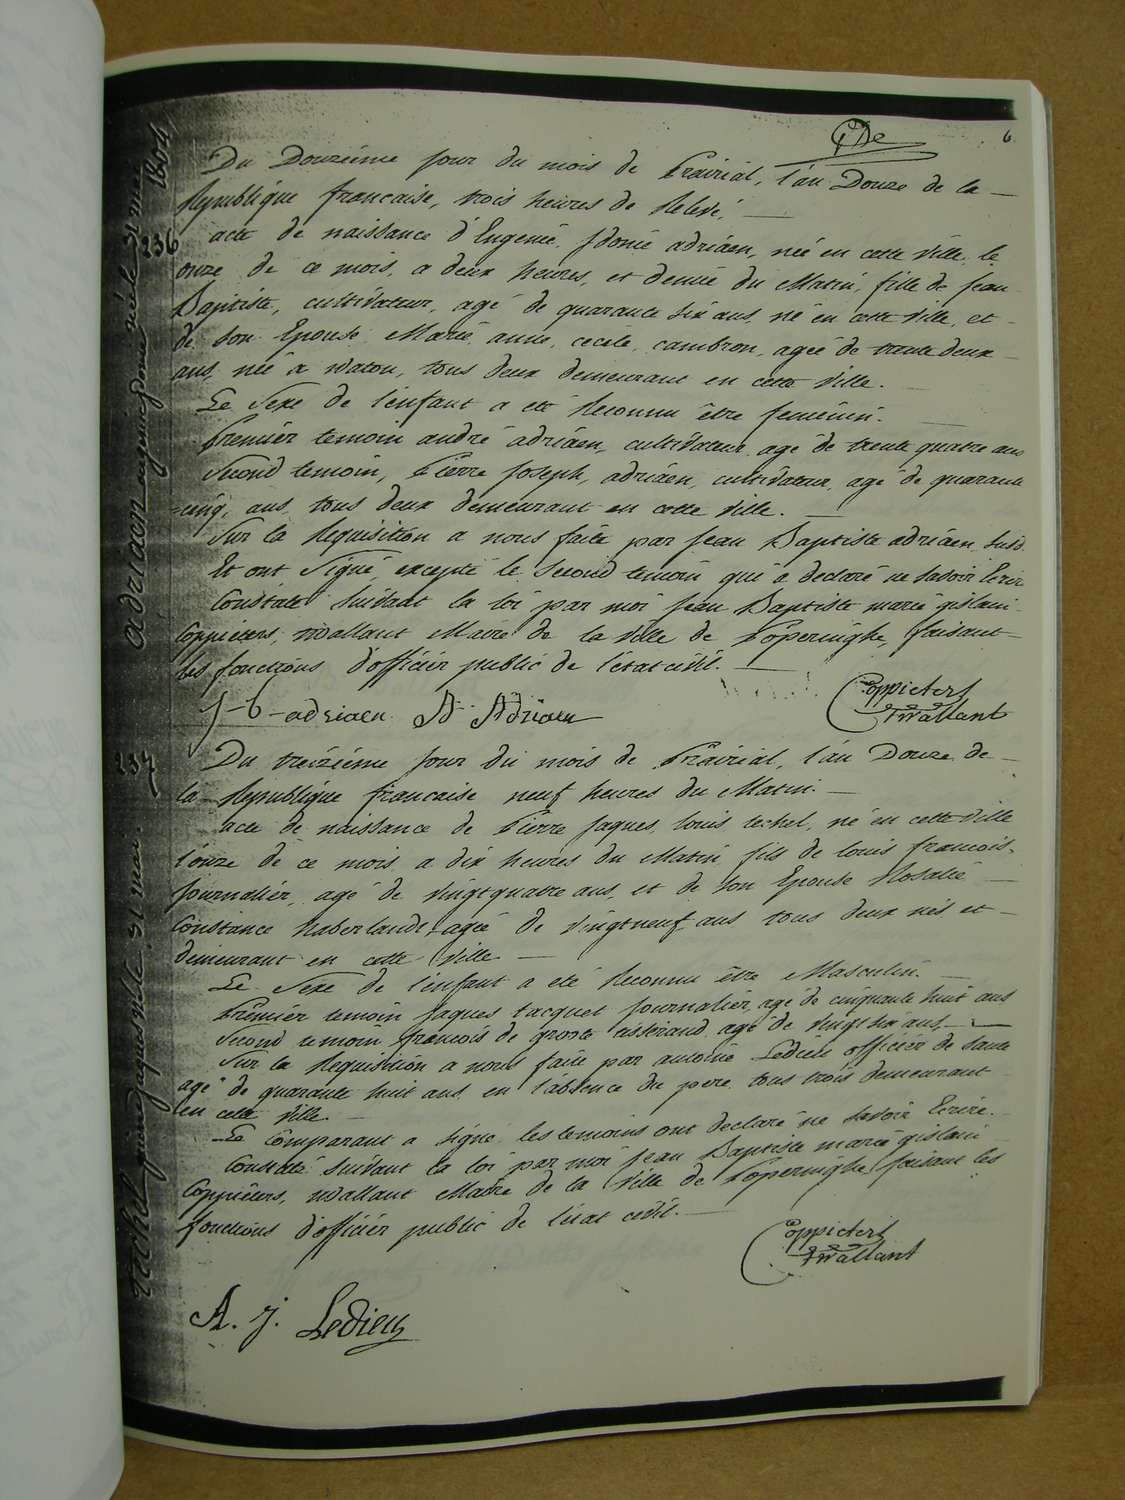 6
Du Douzième jour du mois de Prairial, l'an Douze de la
Republique francaise, trois heures de Relevé,
236
acte de naissance d'Eugenie Idonie adriaen, née en cette ville, le
onze de ce mois, a deux heures, et demie du Matin, fille de jean
Baptiste, cultivateur, agé de quarante six ans, né en cette ville, et
de son Epouse Marie anne, cecile, cambron, agée de trente deux
ans, née a watou, tous deux demeurant en cette ville.
Le Sexe de l'enfant a eté Reconnu être feminin.
Premier temoin andré adriaen, cultivateur, agé de trente quatre ans
Second temoin, Pierre joseph, adriaen, cultivateur, agé de quarante
=cinq, ans, tous deux demeurant en cette ville.
Sur la Requisition a nous faite par jean Baptiste adriaen, susd.
Et ont Signé excepté le Second temoin qui a declaré ne savoir Ecrire
Constaté Suivant la loi par moi jean Baptiste marie gislain
Coppieters, Wallant Maire de la ville de Poperinghe, faisant
les fonctions d'officier public de l'état civil.
j-b-adriaen A Adriaen
Coppieters
tWallant
237
Du treizième jour du mois de Prairial, l'an Douze de
la Republique francaise neuf heures du Matin.
acte de naissance de Pierre jaques, louis, techel, né en cette ville
l'onze de ce mois a dix heures du Matin, fils de louis francois,
journalier, agé de vingtquatre ans, et de son Epouse Rosalie
Constance haberlandt, agée de vingtneuf ans tous deux nés et
demeurant en cette ville
Le Sexe de l'enfant a eté Reconnu être Masculin.
Premier temoin jaques tacquet journalier, agé de cinquante huit ans
Second temoin francois de groote tisserand, agé de vingt six ans,
Sur la Requisition a nous faite par antoine Ledieu officier de santé
agé de quarante huit ans, en l'absence du pere, tous trois demeurant
en cette ville.
Le comparant a signé, les temoins ont declaré ne savoir Ecrire.
Constaté Suivant la loi par moi jean Baptiste marie gislain
Coppieters, wallant Maire de la ville de Poperinghe, faisant les
fonctions d'officier public de l'état civil.
Coppieters
tWallant
A. j. Ledieu
adriaen eugenie idonie née le 31 mai 1804
techel pierre jaques né le 31 mai